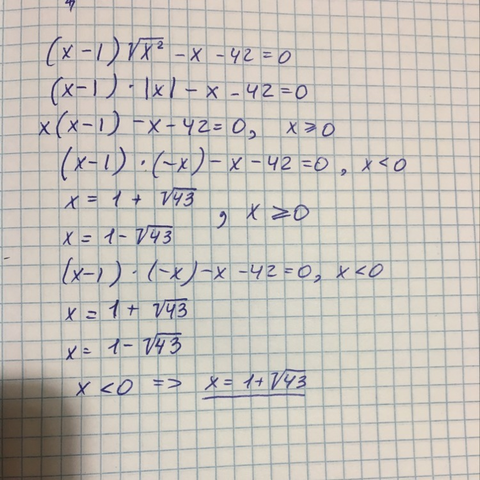 (x-1)√x² - x - 42 = 0
(x-1) · |x| - x - 42 = 0
x(x-1) - x - 42 = 0, x ≥ 0
(x-1) · (-x) - x - 42 = 0, x < 0
x = 1 + √43
, x ≥ 0
x = 1 - √43
(x-1) · (-x) - x - 42 = 0, x < 0
x = 1 + √43
x = 1 - √43
x < 0 => x = 1 + √43